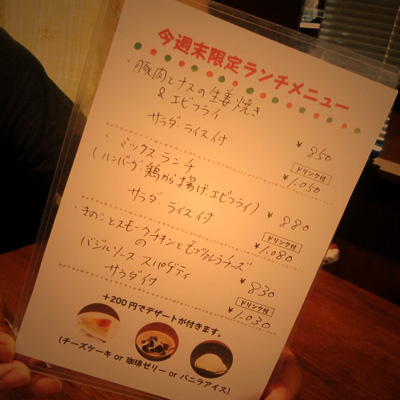 今週末限定ランチメニュー
・豚肉とナスの生姜焼き
& エビフライ
サラダ ライス付
¥850
ドリンク付
¥1,050
・ミックスランチ
(ハンバーグ・鶏から揚げ・エビフライ)
サラダ ライス付
¥880
ドリンク付
¥1,080
・きのことスモークチキンとモッツァレラチーズ
の
バジルソース スパゲティ
サラダ付
¥830
ドリンク付
¥1,030
+200円でデザートが付きます。
(チーズケーキ or 珈琲ゼリー or バニラアイス)